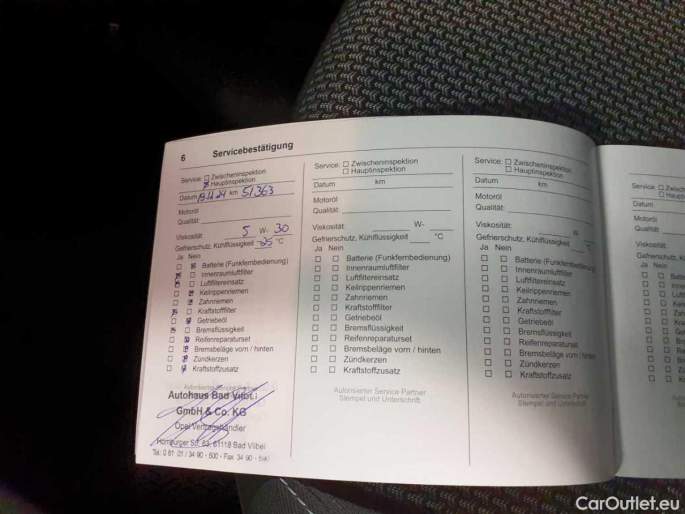 6 Servicebestätigung
Service: Zwischeninspektion
Hauptinspektion
Datum km 51.363
Motoröl
Qualität:
Viskosität: 5 W- 30
Gefrierschutz, Kühlflüssigkeit °C
Ja Nein
Batterie (Funkfernbedienung)
Innenraumluftfilter
Luftfiltereinsatz
Keilrippenriemen
Zahnriemen
Kraftstofffilter
Getriebeöl
Bremsflüssigkeit
Reifenreparaturset
Bremsbeläge vorn / hinten
Zündkerzen
Kraftstoffzusatz
Autohaus Bad Vilbel
GmbH & Co. KG
Opel Vertragshändler
Homburger Str. 61118 Bad Vilbel
Service: Zwischeninspektion
Hauptinspektion
Datum km
Motoröl
Qualität:
Viskosität: W-
Gefrierschutz, Kühlflüssigkeit °C
Ja Nein
Batterie (Funkfernbedienung)
Innenraumluftfilter
Luftfiltereinsatz
Keilrippenriemen
Zahnriemen
Kraftstofffilter
Getriebeöl
Bremsflüssigkeit
Reifenreparaturset
Bremsbeläge vorn / hinten
Zündkerzen
Kraftstoffzusatz
Autorisierter Service Partner
Stempel und Unterschrift
Service: Zwischeninspektion
Hauptinspektion
Datum km
Motoröl
Qualität:
Viskosität: W-
Gefrierschutz, Kühlflüssigkeit °C
Ja Nein
Batterie (Funkfernbedienung)
Innenraumluftfilter
Luftfiltereinsatz
Keilrippenriemen
Zahnriemen
Kraftstofffilter
Getriebeöl
Bremsflüssigkeit
Reifenreparaturset
Bremsbeläge vorn / hinten
Zündkerzen
Kraftstoffzusatz
Autorisierter Service Partner
Stempel und Unterschrift
Service:
Datum
Motoröl
Qualität:
Viskosität:
Ja Nein
CarOutlet.eu